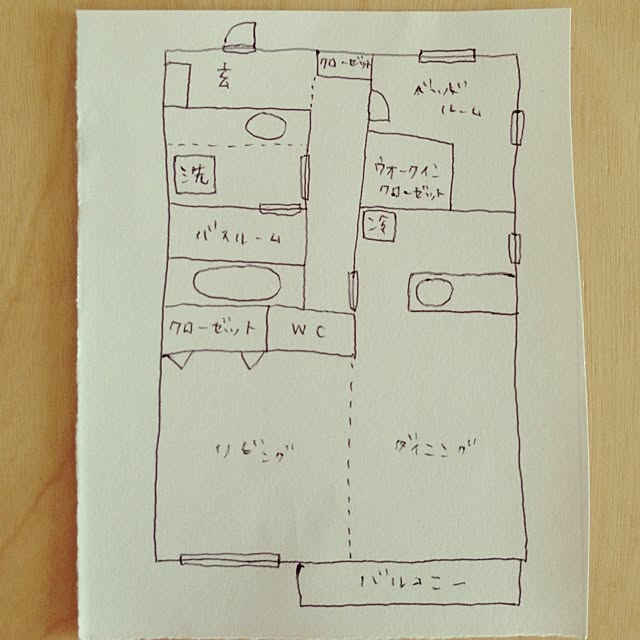 玄
クローゼット
ベッド
ルーム
洗
ウオークイン
クローゼット
冷
バスルーム
クローゼット
WC
リビング
ダイニング
バルコニー